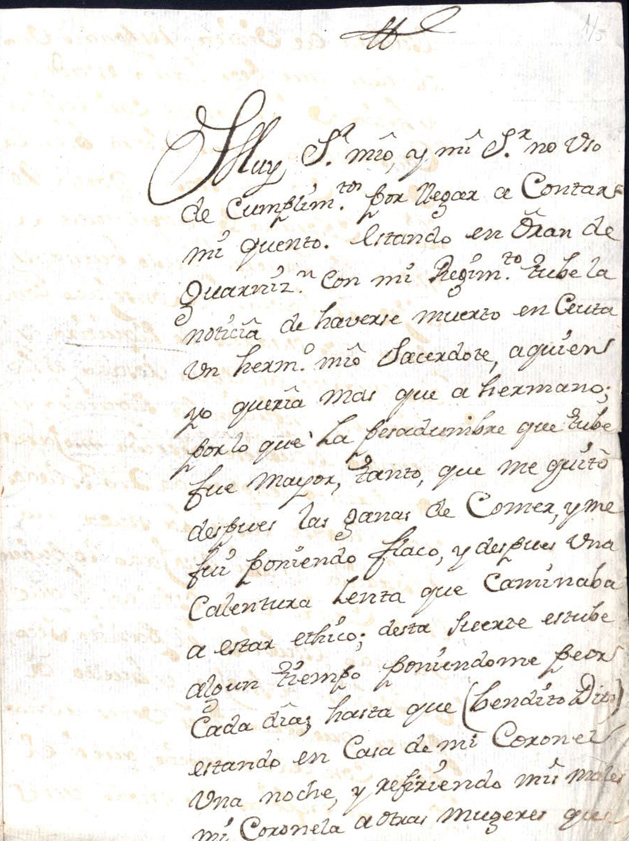 Muy S.r mio, y mi S.r no vso
de cumplim.tos por llegar a Contar
mi quento. Estando en Oran de
guarniz.n con mi Regim.to tube la
noticia de haverse muerto en Ceuta
vn herm.o mio Sacerdote, a quien
yo queria mas que a hermano;
por lo que la pesadumbre que tube
fue mayor, tanto, que me quitò
despues las ganas de Comer, y me
fui poniendo flaco, y despues vna
Calentura lenta que Caminaba
a estar ethico; desta suerte estube
algun tiempo poniendome peor
Cada dia, hasta que (bendito Dios)
estando en Casa de mi Coronel
vna noche, y refiriendo mis males
mi Coronela a otras mugeres que